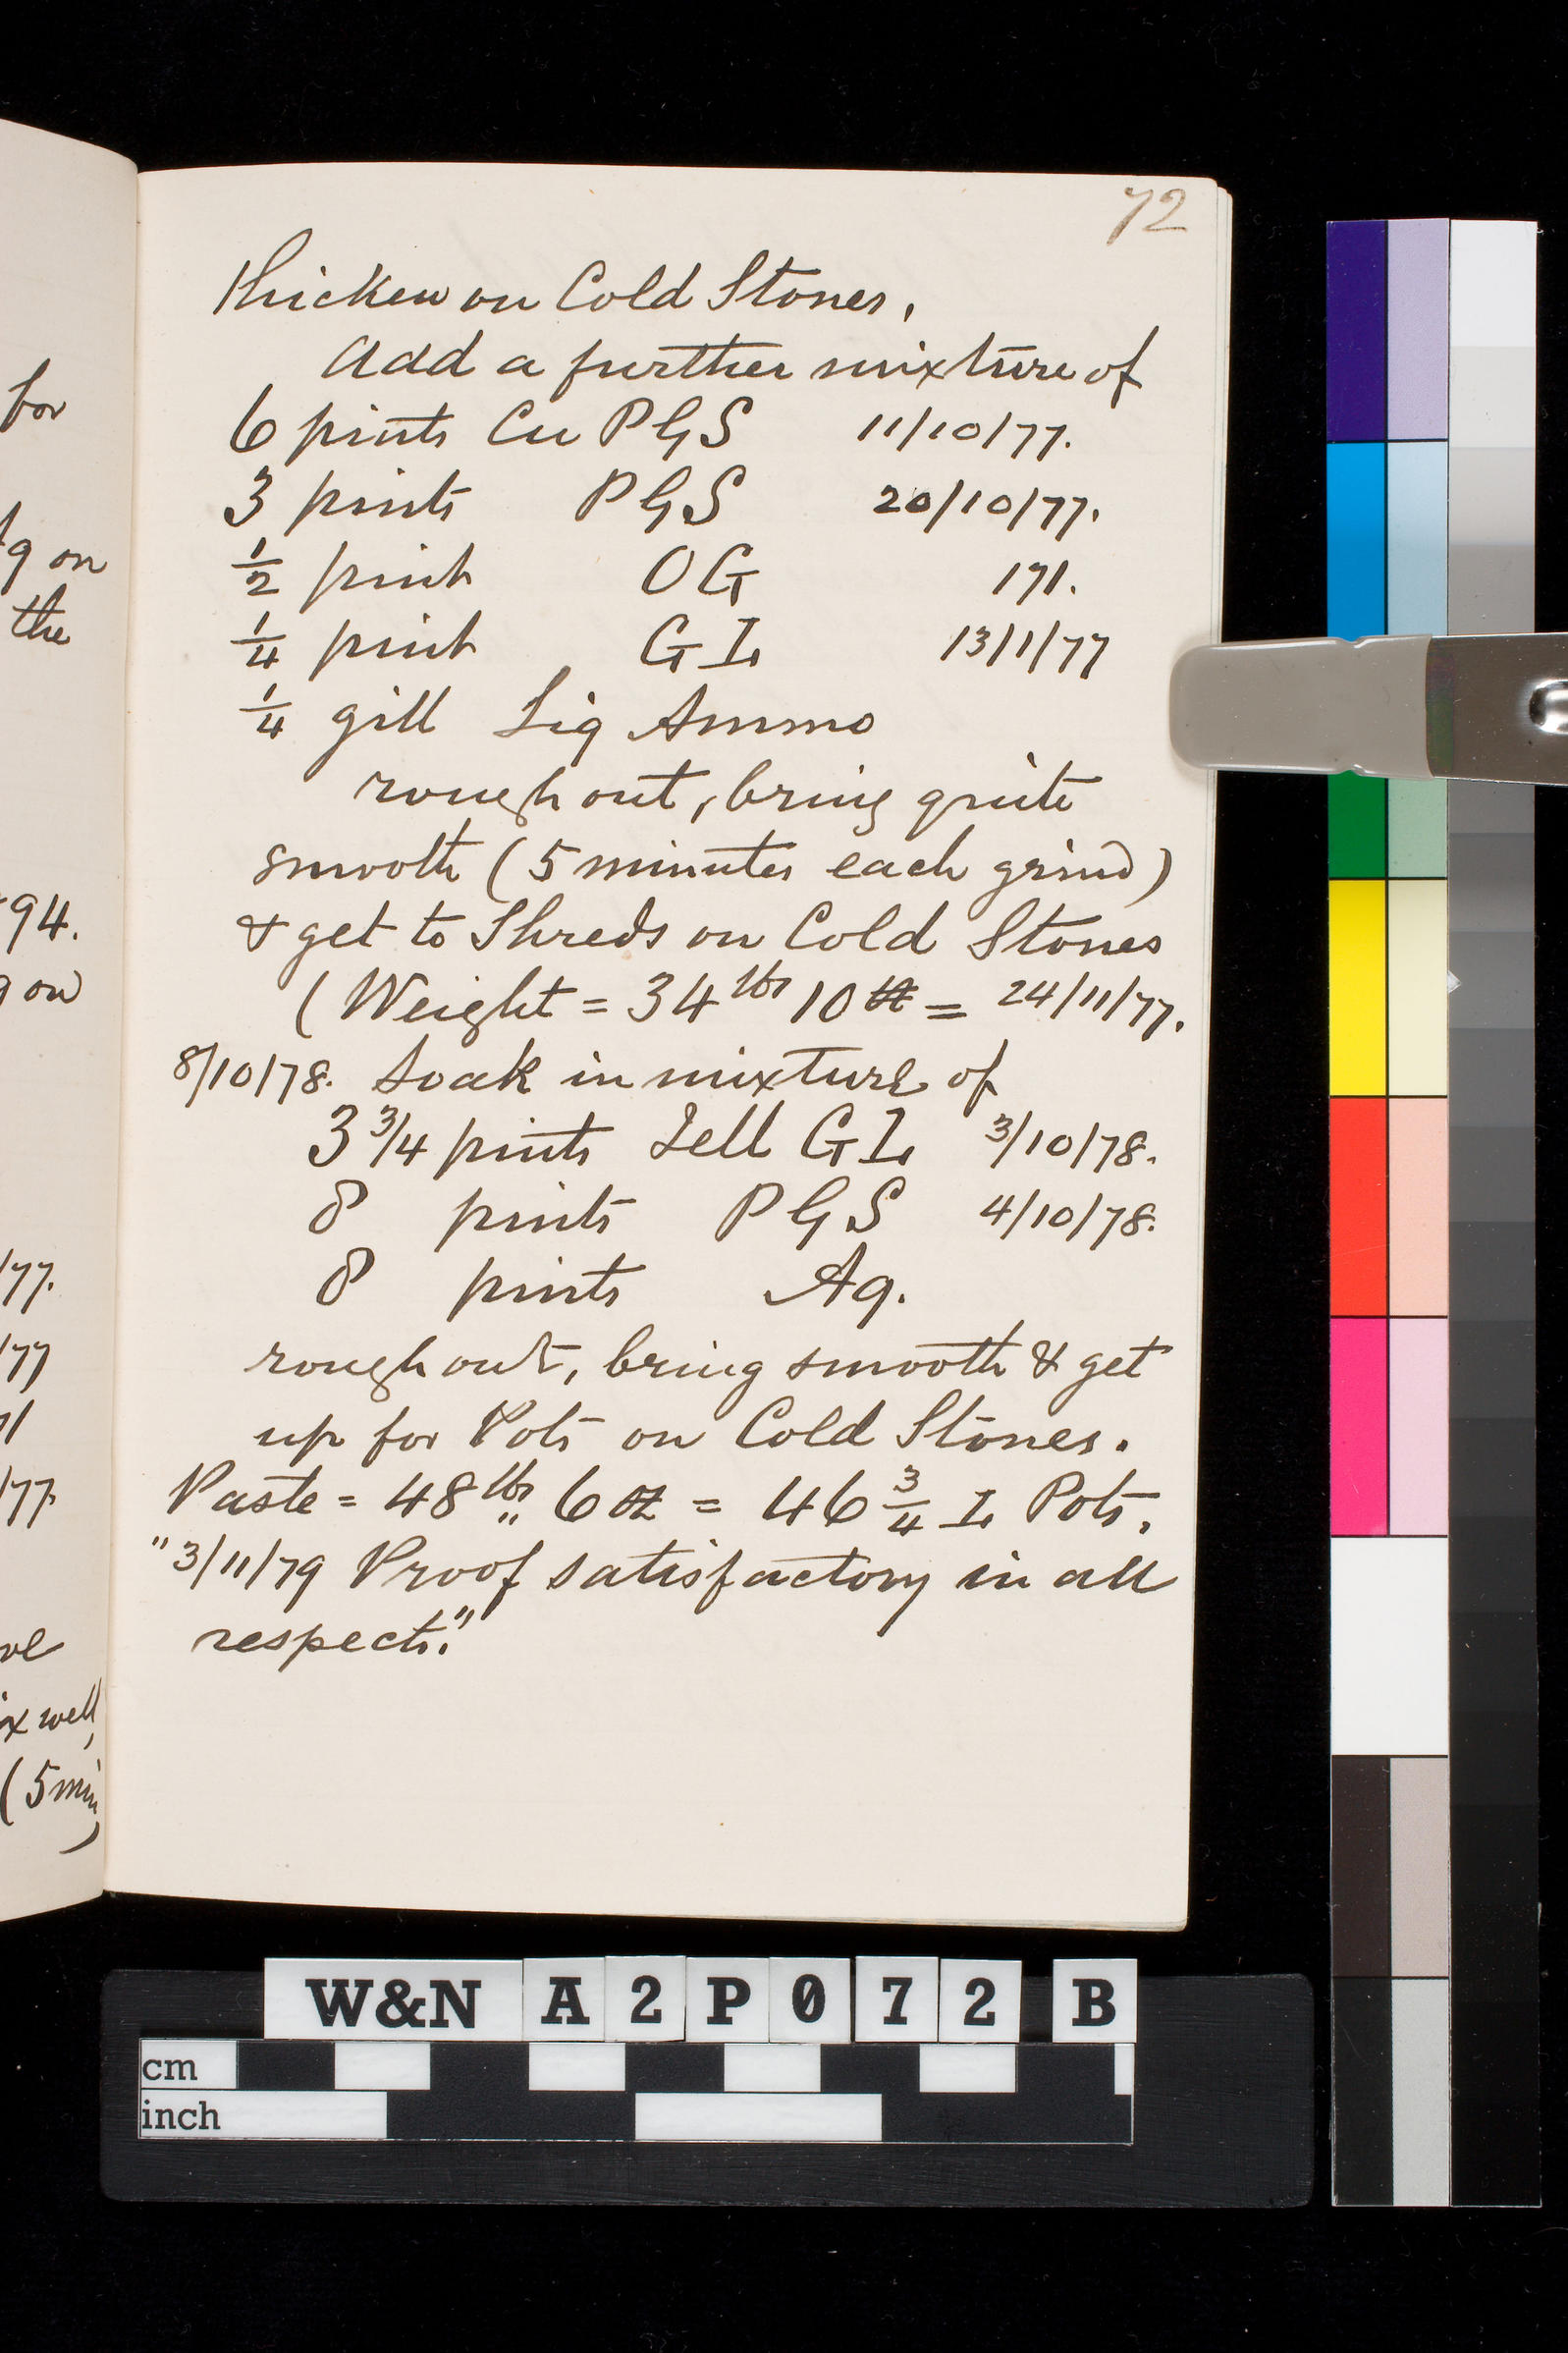 72
thicken on Cold Stones,
Add a further mixture of
6 pints Cu PGS 11/10/77.
3 pints PGS 20/10/77.
1/2 pint OG 171.
1/4 pint G I. 13/1/77
1/4 gill Liq Ammo
rough out, bring quite
smooth (5 minutes each grind)
& get to Shreds on Cold Stones
(Weight = 34 lbs 10 oz = 24/11/77.
8/10/78. Soak in mixture of
3 3/4 pints Jell G I. 3/10/78.
8 pints PGS 4/10/78.
8 pints Aq.
rough out, bring smooth & get
up for Pots on Cold Stones.
Paste = 48 lbs „ 6 oz = 46 3/4 I. Pots.
"3/11/79 Proof satisfactory in all
respects."
for
on
the
94.
on
77.
77
77.
x well,
(5 min
W&N A2P072 B
cm
inch